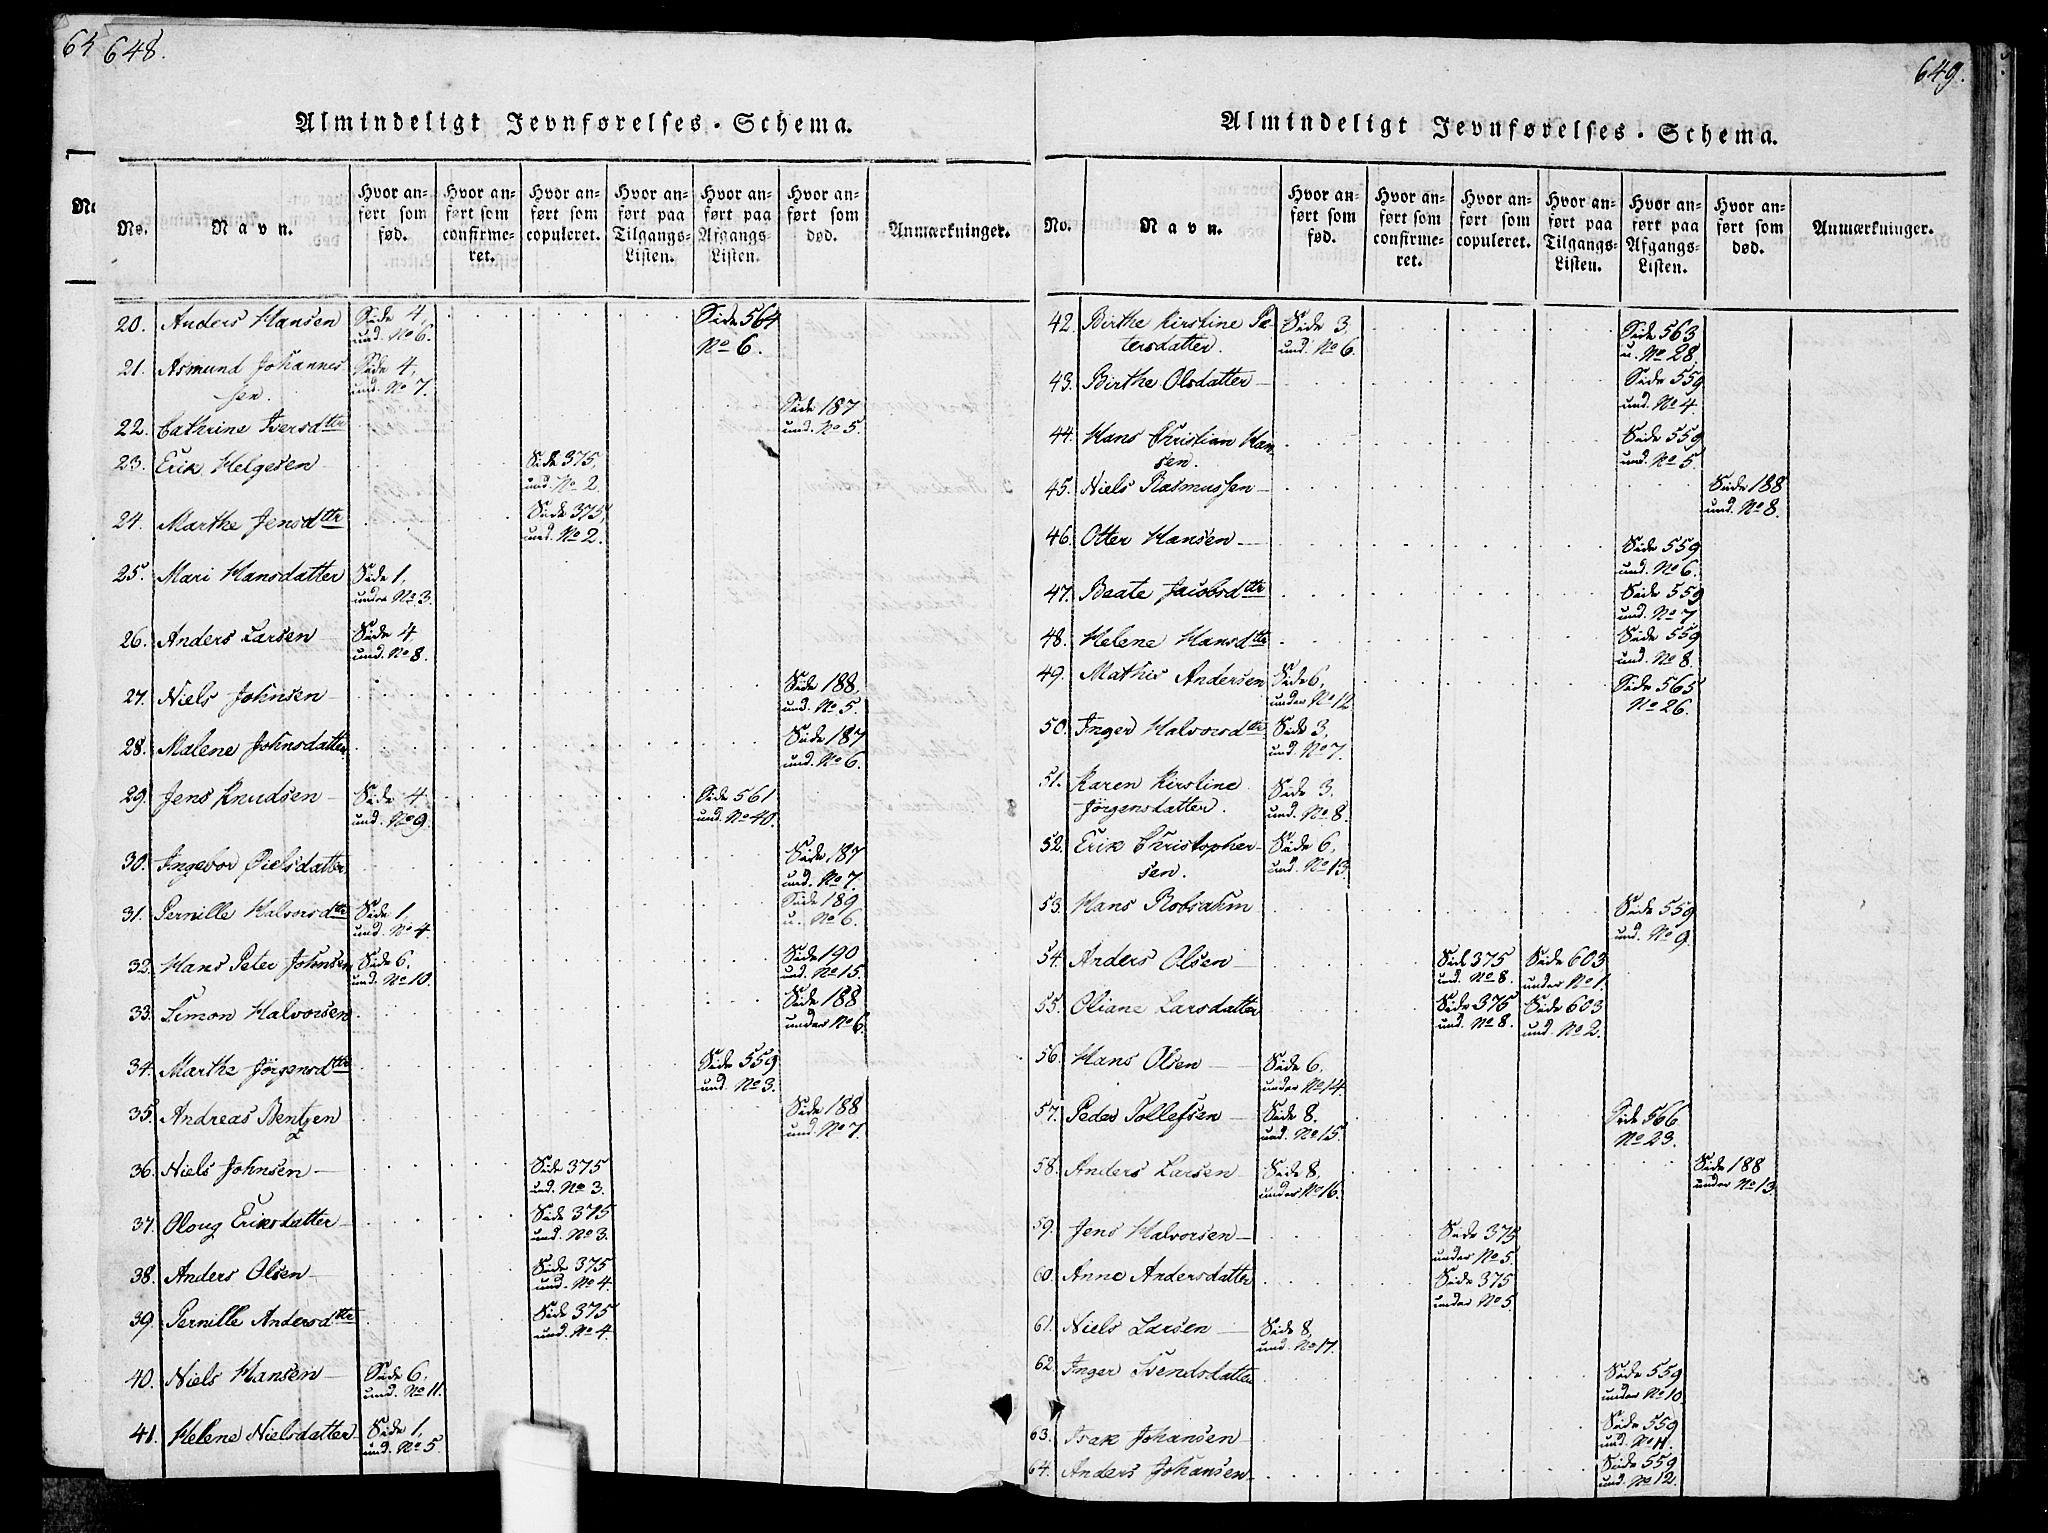 648.
Almindeligt Jevnførelses-Schema.
No.
Navn.
Hvor an-
ført som
fød.
Hvor an-
ført som
confirme-
ret.
Hvor an-
ført som
copuleret.
Hvor an-
ført paa
Tilgangs-
Listen.
Hvor an-
ført paa
Afgangs-
Listen.
Hvor an-
ført som
død.
Anmærkninger.
20. Anders Hansen Side 4 Side 564
und. No 6. No 6.
21. Asmund Johannes Side 4,
sen. und. No 7.
22. Cathrine Iversdttr Side 187
und. No 5.
23. Erik Helgesen Side 375,
und. No 2.
24. Marthe Jensdttr Side 375,
und. No 2.
25. Mari Hansdatter Side 1,
under No 3.
26. Anders Larsen Side 4
und. No 8.
27. Niels Johnsen Side 188,
und. No 5.
28. Malene Johnsdatter Side 187
und. No 6.
29. Jens Knudsen Side 4 Side 561
und. No 9. und. No 40.
30. Ingebor Øielsdatter Side 187
und. No 7.
31. Pernille Halvorsdttr Side 1, Side 189
und. No 4. u. No 6.
32. Hans Peter Johnsen Side 6, Side 190
und. No 10. und. No 15.
33. Simon Halvorsen Side 188
under No 6.
34. Marthe Jørgensdttr Side 559
und. No 3.
35. Andreas Bentzen Side 188
und. No 7.
36. Niels Johnsen Side 375
und. No 3.
37. Oloug Eriksdatter Side 375
und. No 3.
38. Anders Olsen Side 375
und. No 4.
39. Pernille Andersdttr Side 375
und. No 4.
40. Niels Hansen Side 6,
und. No 11.
41. Helene Nielsdatter Side 1,
und. No 5.
649.
Almindeligt Jevnførelses-Schema.
No.
Navn.
Hvor an-
ført som
fød.
Hvor an-
ført som
confirme-
ret.
Hvor an-
ført som
copuleret.
Hvor an-
ført paa
Tilgangs-
Listen.
Hvor an-
ført paa
Afgangs-
Listen.
Hvor an-
ført som
død.
Anmærkninger.
42. Birthe Kirstine Pe- Side 3, Side 563
tersdatter. und. No 6. u. No 28.
43. Birthe Olsdatter Side 559
und. No 4.
44. Hans Christian Han- Side 559
sen. und. No 5.
45. Niels Rasmussen Side 188
und. No 8.
46. Otter Hansen Side 559
und. No 6.
47. Beate Jacobsdttr Side 559
und. No 7
48. Helene Hansdttr Side 559
und. No 8.
49. Mathis Andersen Side 6, Side 565
under No 12 No 26.
50. Inger Halvorsdttr Side 3,
und. No 7.
51. Karen Kirstine Side 3.
Jörgensdatter. und. No 8.
52. Erik Christopher- Side 6,
sen. und. No 13.
53. Hans Robsahm Side 559
und. No 9.
54. Anders Olsen Side 375 Side 603
und. No 8. under No 1.
55. Oliane Larsdatter Side 375 Side 603
und. No 8. und. No 2.
56. Hans Olsen Side 6,
under No 14.
57. Peder Tollefsen Side 8. Side 566
und. No 15. No 23.
58. Anders Larsen Side 8, Side 188
under No 16. under No 13.
59. Jens Halvorsen Side 375
under No 5.
60. Anne Andersdatter Side 375
under No 5.
61. Niels Larsen Side 8,
und. No 17.
62. Inger Svendsdatter Side 559
under No 10.
63. Isak Johansen Side 559
und. No 11.
64. Anders Johansen Side 559
und. No 12.